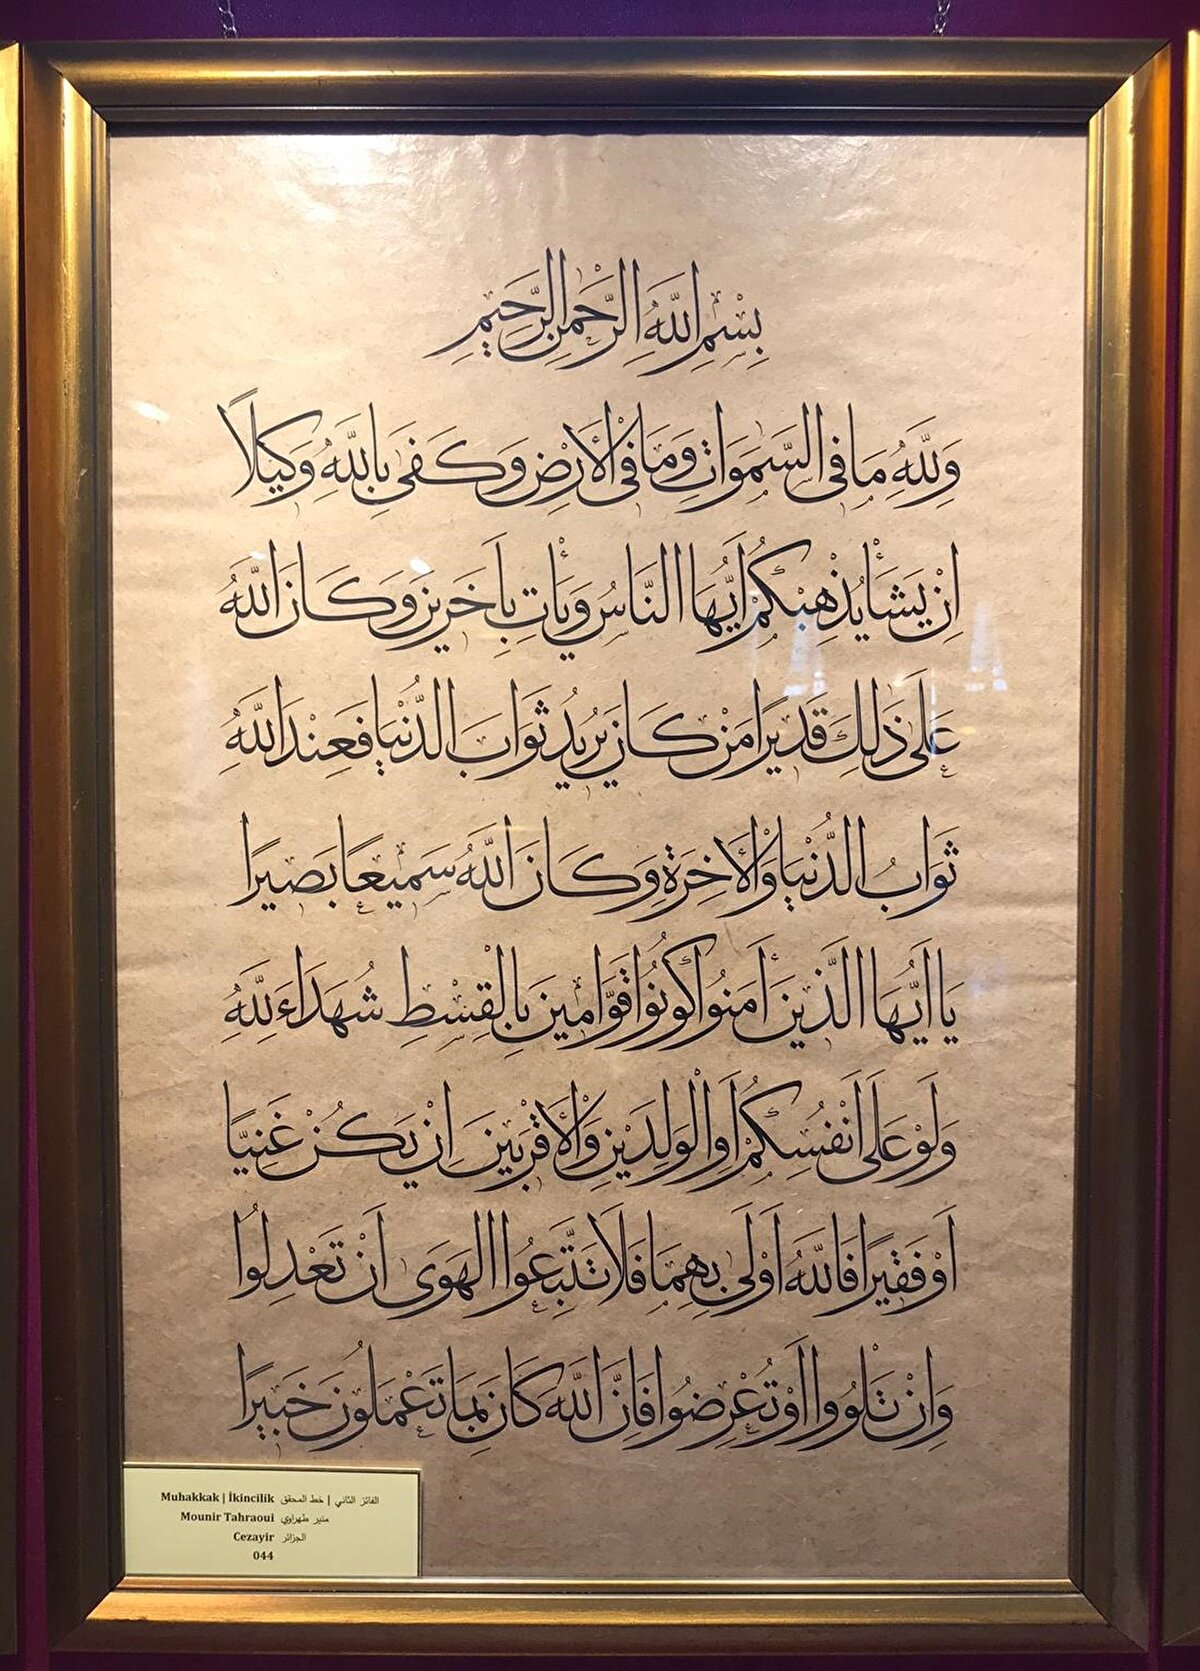 بِسْمِ اللَّهِ الرَّحْمٰنِ الرَّحِيمِ
وَلِلَّهِ مَا فِى السَّمٰوَاتِ وَمَا فِى الْاَرْضِ وَكَفَى بِاللَّهِ وَكِيلًا
اِنْ يَشَأْ يُذْهِبْكُمْ اَيُّهَا النَّاسُ وَيَأْتِ بِاٰخَرِينَ وَكَانَ اللَّهُ
عَلَى ذٰلِكَ قَدِيرًا مَنْ كَانَ يُرِيدُ ثَوَابَ الدُّنْيَا فَعِنْدَ اللَّهِ
ثَوَابُ الدُّنْيَا وَالْاٰخِرَةِ وَكَانَ اللَّهُ سَمِيعًا بَصِيرًا
يَا اَيُّهَا الَّذِينَ اٰمَنُوا كُونُوا قَوَّامِينَ بِالْقِسْطِ شُهَدَاءَ لِلَّهِ
وَلَوْ عَلَى اَنْفُسِكُمْ اَوِ الْوَالِدَيْنِ وَالْاَقْرَبِينَ اِنْ يَكُنْ غَنِيًّا
اَوْ فَقِيرًا فَاللَّهُ اَوْلَى بِهِمَا فَلَا تَتَّبِعُوا الْهَوَى اَنْ تَعْدِلُوا
وَاِنْ تَلْوُوا اَوْ تُعْرِضُوا فَاِنَّ اللَّهَ كَانَ بِمَا تَعْمَلُونَ خَبِيرًا
Muhakkak | İkincilik الفائز الثاني | خط المحقق
Mounir Tahraoui منير طهراوي
Cezayir الجزائر
044